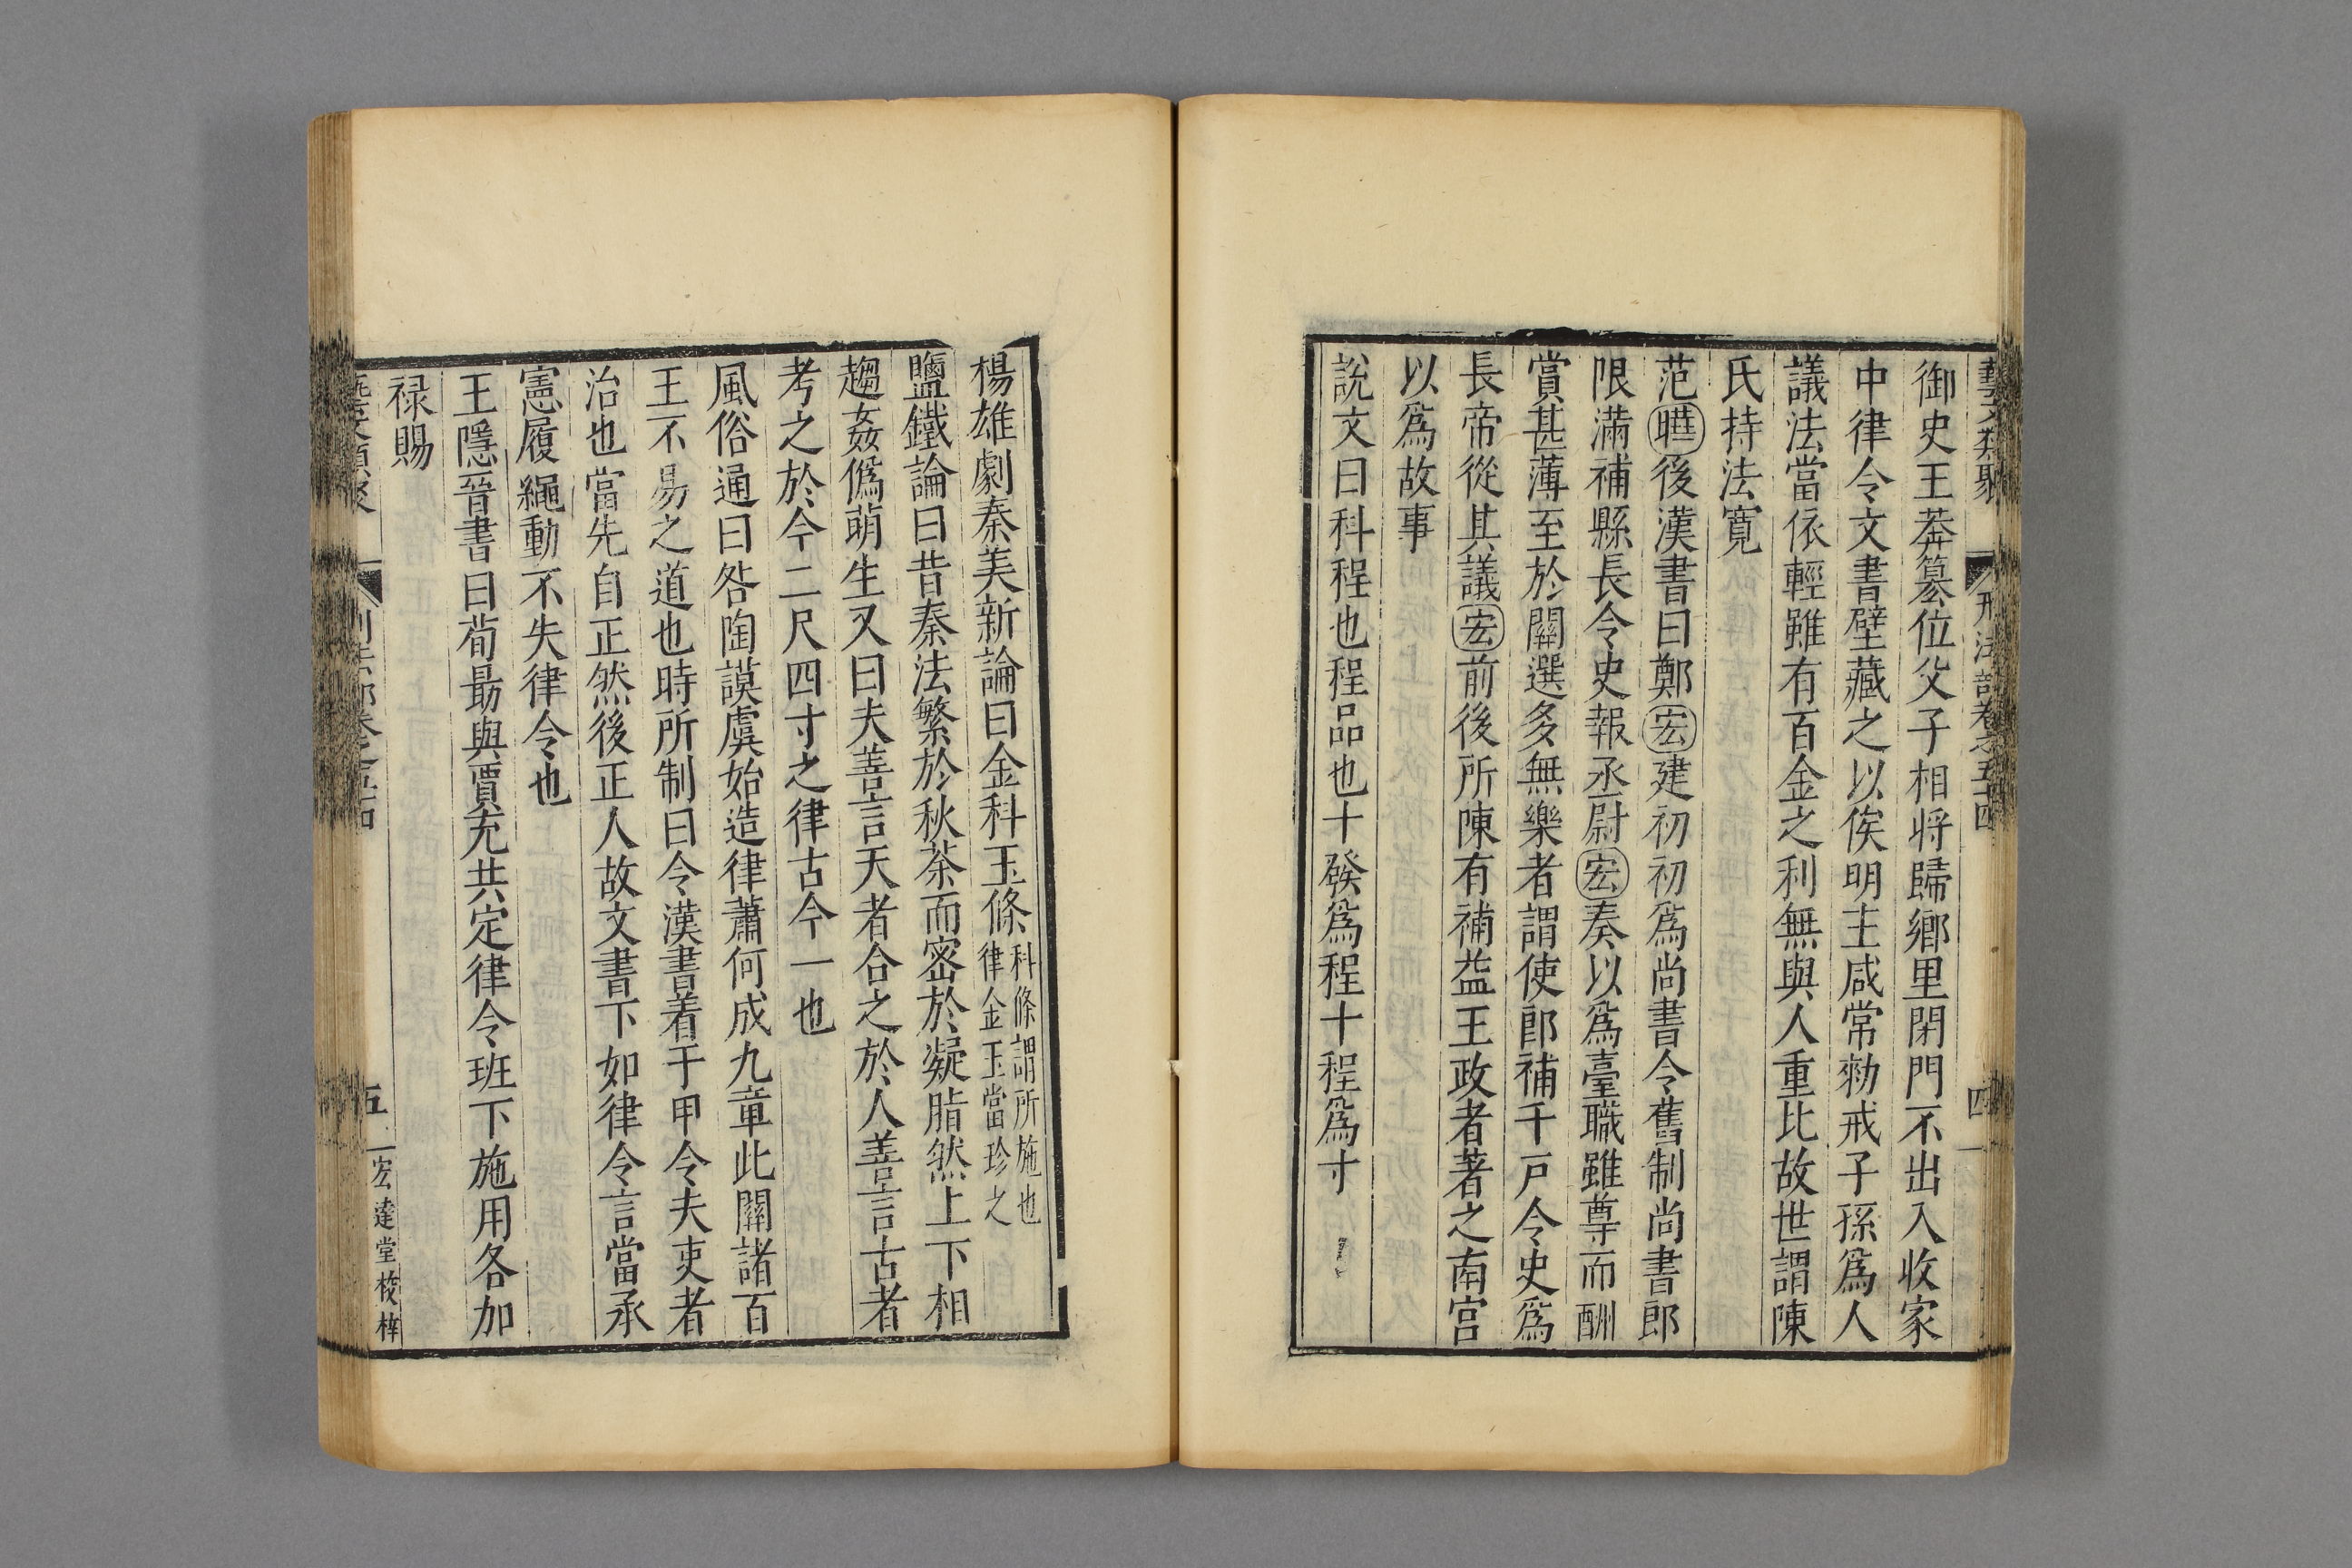 藝文類聚 刑法部卷之五十四 四
御史王莽篡位父子相將歸鄉里閉門不出入收家
中律令文書壁藏之以俟明主咸常勑戒子孫爲人
議法當依輕雖有百金之利無與人重比故世謂陳
氏持法寛
范曄後漢書曰鄭宏建初初爲尚書令舊制尚書郎
限滿補縣長令史報丞尉宏奏以爲臺職雖尊而酬
賞甚薄至於開選多無樂者謂使郎補千戸令史爲
長帝從其議宏前後所陳有補益王政者著之南宫
以爲故事
說文曰科程也程品也十發爲程十程爲寸
楊雄劇秦美新論曰金科玉條科條謂所施也律金玉當珍之
鹽鐵論曰昔秦法繁於秋荼而密於凝脂然上下相
趨姦僞萌生又曰夫善言天者合之於人善言古者
考之於今二尺四寸之律古今一也
風俗通曰咎陶謨虞始造律蕭何成九章此關諸百
王不易之道也時所制曰令漢書着于甲令夫吏者
治也當先自正然後正人故文書下如律令言當承
憲履繩動不失律令也
王隱晉書曰荀勗與賈充共定律令班下施用各加
禄賜
五 宏達堂校梓